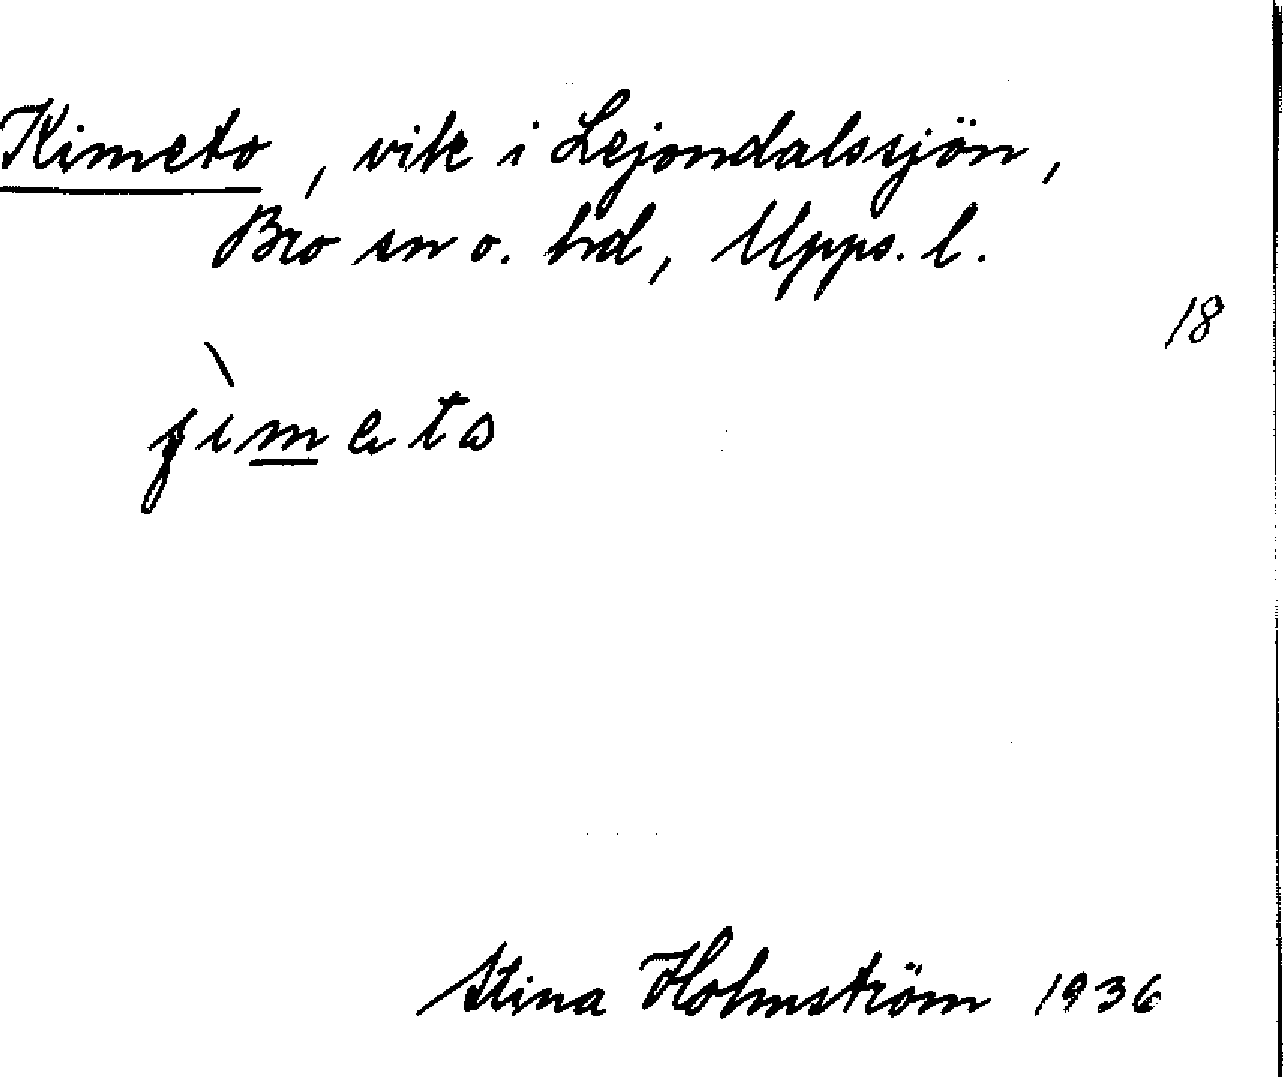 Kimeto, vik i Lejondalssjön,
Bro sn o. hd, Upps. l.
18
Stina Holmström 1936